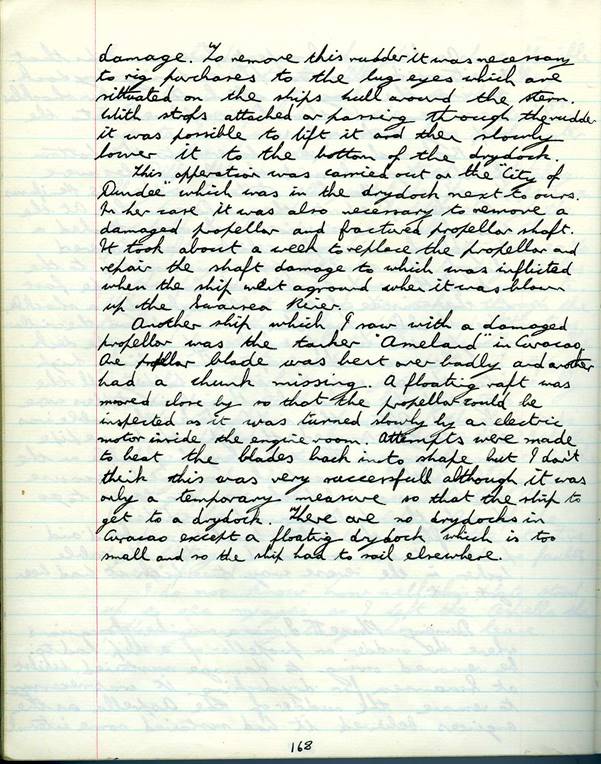 damage. To remove this rudder it was necessary
to rig purchases to the lug eyes which are
sittuated on the ships hull around the stern.
With stops attached or passing through the rudder
it was possible to lift it and then slowly
lower it to the bottom of the drydock.
This opperation was carried out on the "City of
Dundee" which was in the drydock next to ours.
In her case it was also necessary to remove a
damaged propellar and fractured propellar shaft.
It took about a week to replace the propellar and
repair the shaft damage to which was inflicted
when the ship went aground when it was blown
up the Swansea River.
Another ship which I saw with a damaged
propellar was the tanker "Ameland" in Curacao.
One blade was bent over badly and another
had a chunk missing. A floating raft was
moved close by so that the propellar could be
inspected as it was turned slowly by an electric
motor inside the engine room. Attempts were made
to beat the blades back into shape but I don't
think this was very successfull although it was
only a temporary measure so that the ship to
get to a drydock. There are no drydocks in
Curacao except a floatig drydock which is too
small and so the ship had to sail elsewhere.
168